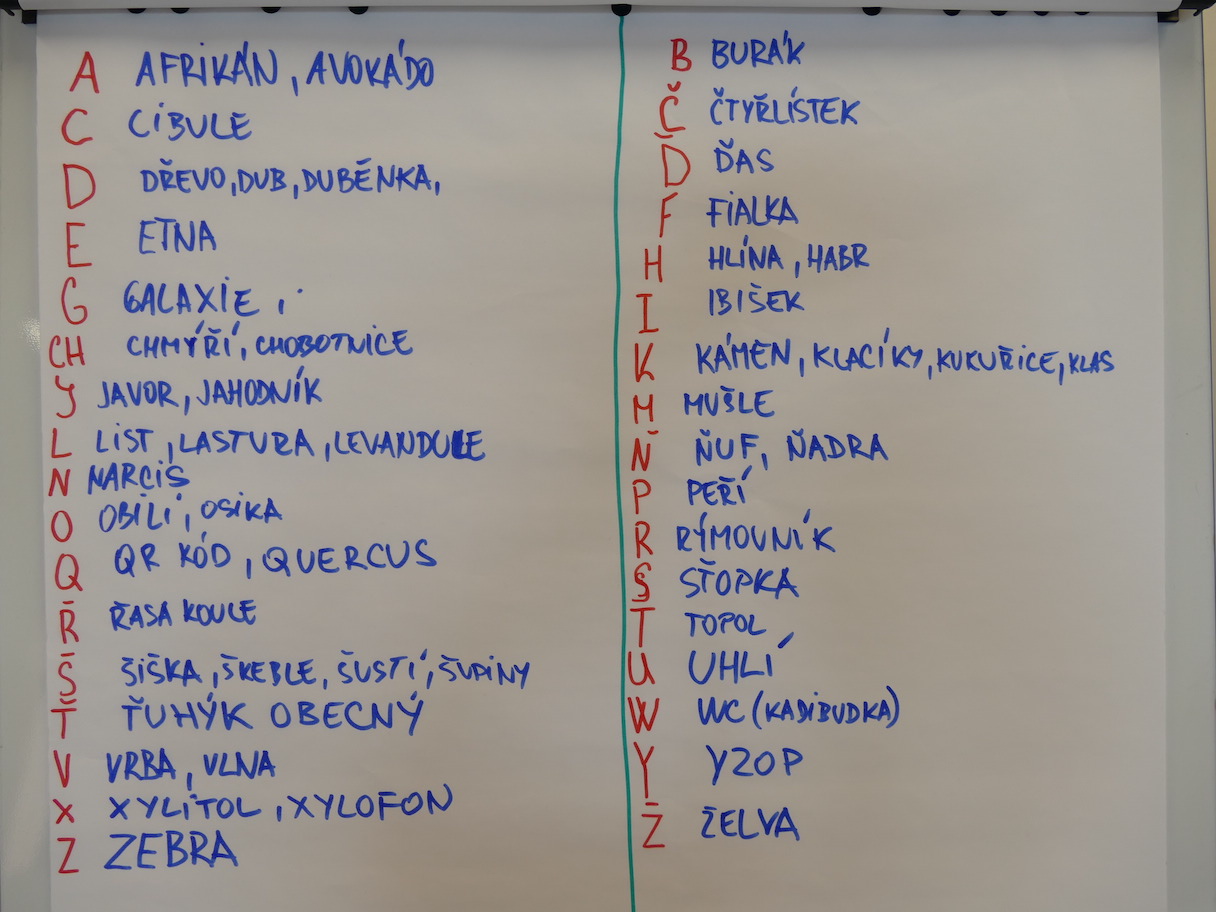 A AFRIKÁN, AVOKÁDO
C CIBULE
D DŘEVO, DUB, DUBĚNKA,
E ETNA
G GALAXIE,
CH CHMÝŘÍ, CHOBOTNICE
J JAVOR, JAHODNÍK
L LIST, LASTURA, LEVANDULE
N NARCIS
O OBILÍ, OSIKA
Q QR KÓD, QUERCUS
Ř ŘASA KOULE
Š ŠIŠKA, ŠKEBLE, ŠUSTÍ, ŠUPINY
Ť ŤUHÝK OBECNÝ
V VRBA, VLNA
X XYLITOL, XYLOFON
Z ZEBRA
B BURÁK
Č ČTYŘLÍSTEK
Ď ĎAS
F FIALKA
H HLÍNA, HABR
I IBIŠEK
K KÁMEN, KLACÍKY, KUKUŘICE, KLAS
M MUŠLE
Ň ŇUF, ŇADRA
P PEŘÍ
R RÝMOVNÍK
S SŤOPKA
T TOPOL
U UHLÍ
W WC (KADIBUDKA)
Y YZOP
Ž ŽELVA